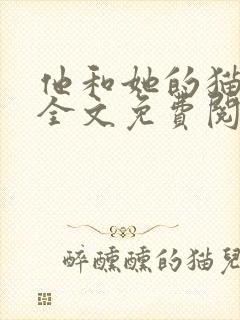 他和她的猫
全文免費閱
醉醺醺的猫兒